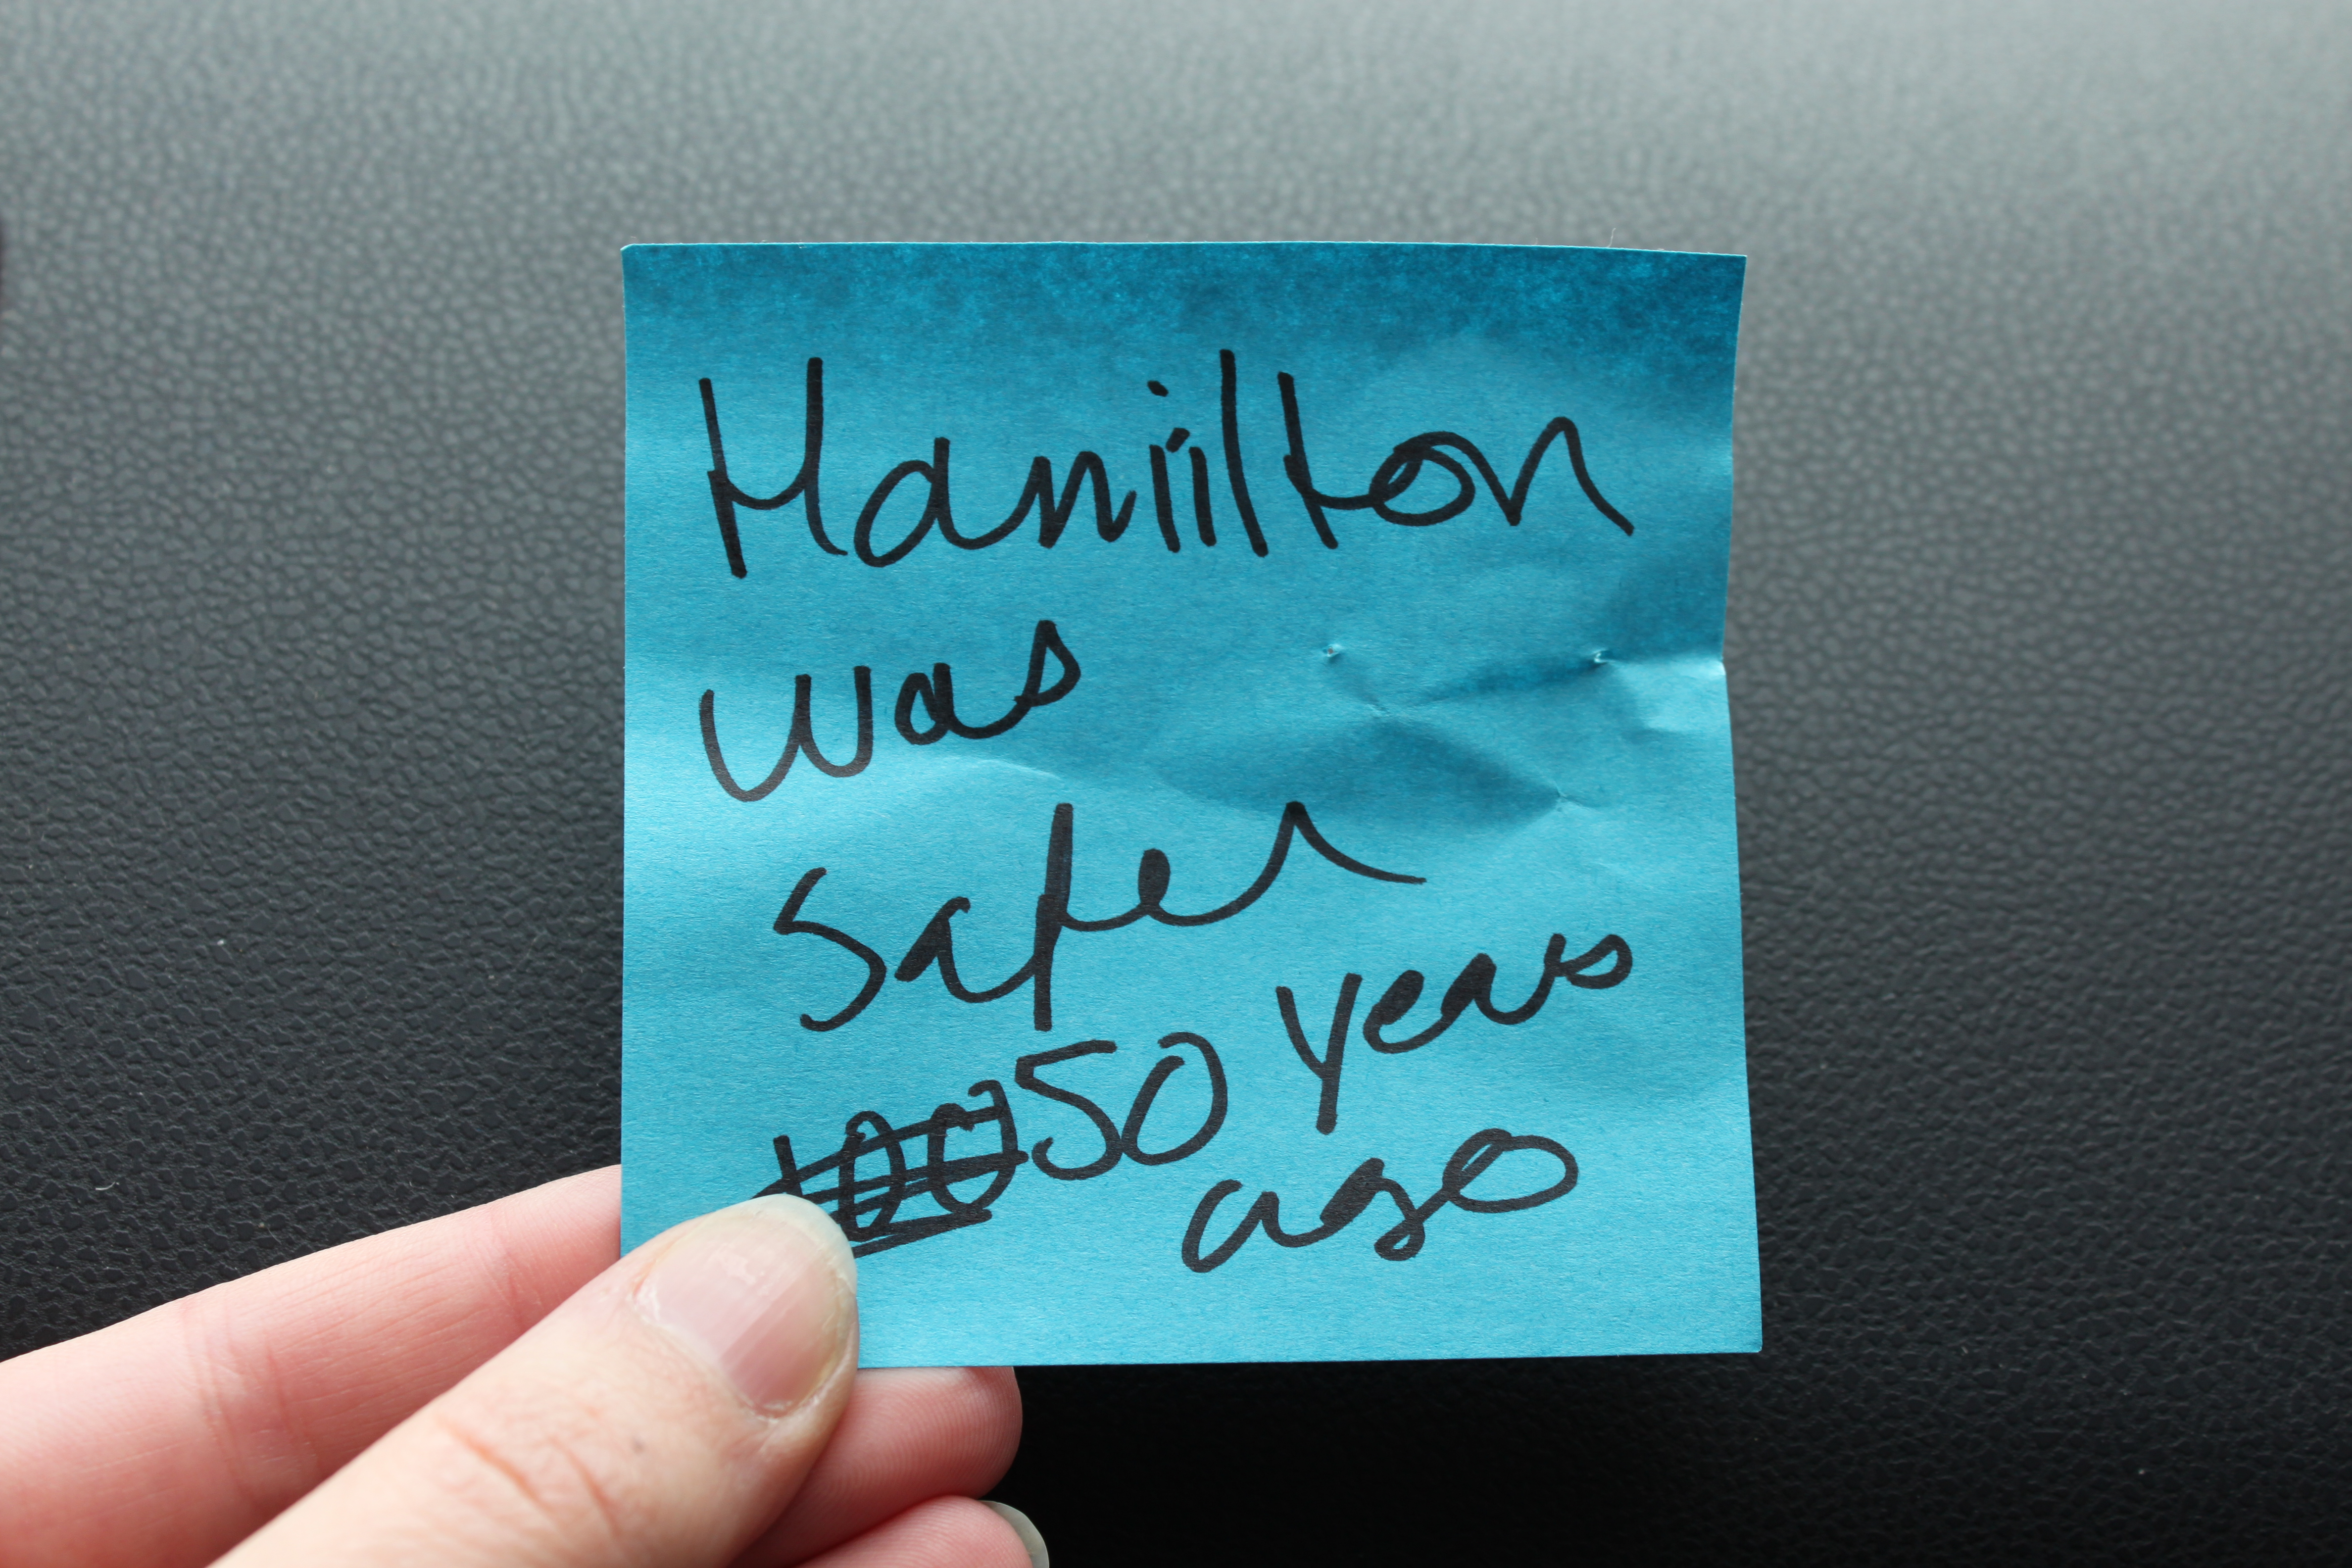 Hamilton
was
safer
100 50 years
ago